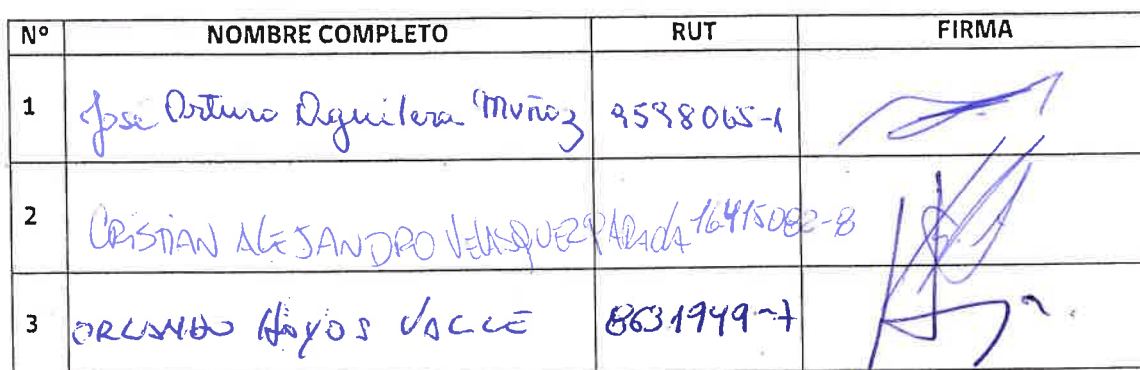 Nº NOMBRE COMPLETO RUT FIRMA
1 José Arturo Aguilera Muñoz 9598065-1
2 CRISTIAN ALEJANDRO VELASQUEZ PARADA 16415082-8
3 ORLANDO HOYOS VALLE 8631949-7